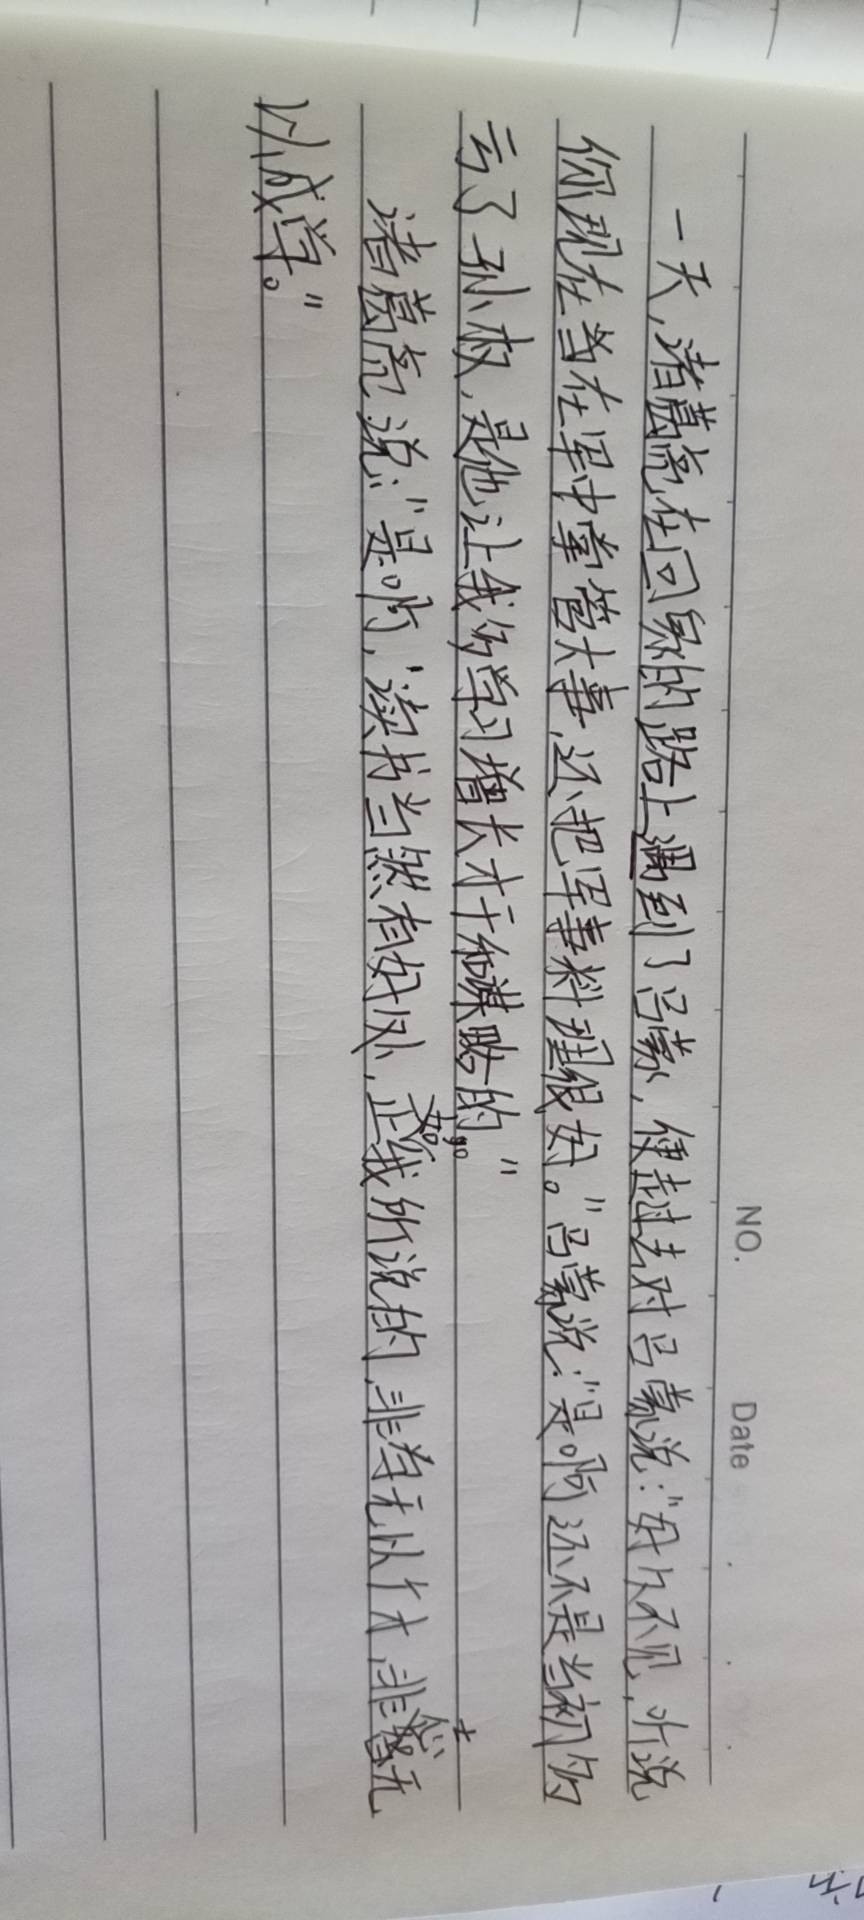 NO.
Date
一天,诸葛亮在回家的路上遇到了吕蒙,便走过去对吕蒙说:"好久不见,听说
你现在当在军中掌管大事,还把军事料理很好。"吕蒙说:"是啊还不是当初的
亏了孙权,是他让我多学习增长才干和谋略的"
诸葛亮说:"是啊,读书当然有好处,正如我所说的,非学无以广才,非志无
以成学。"